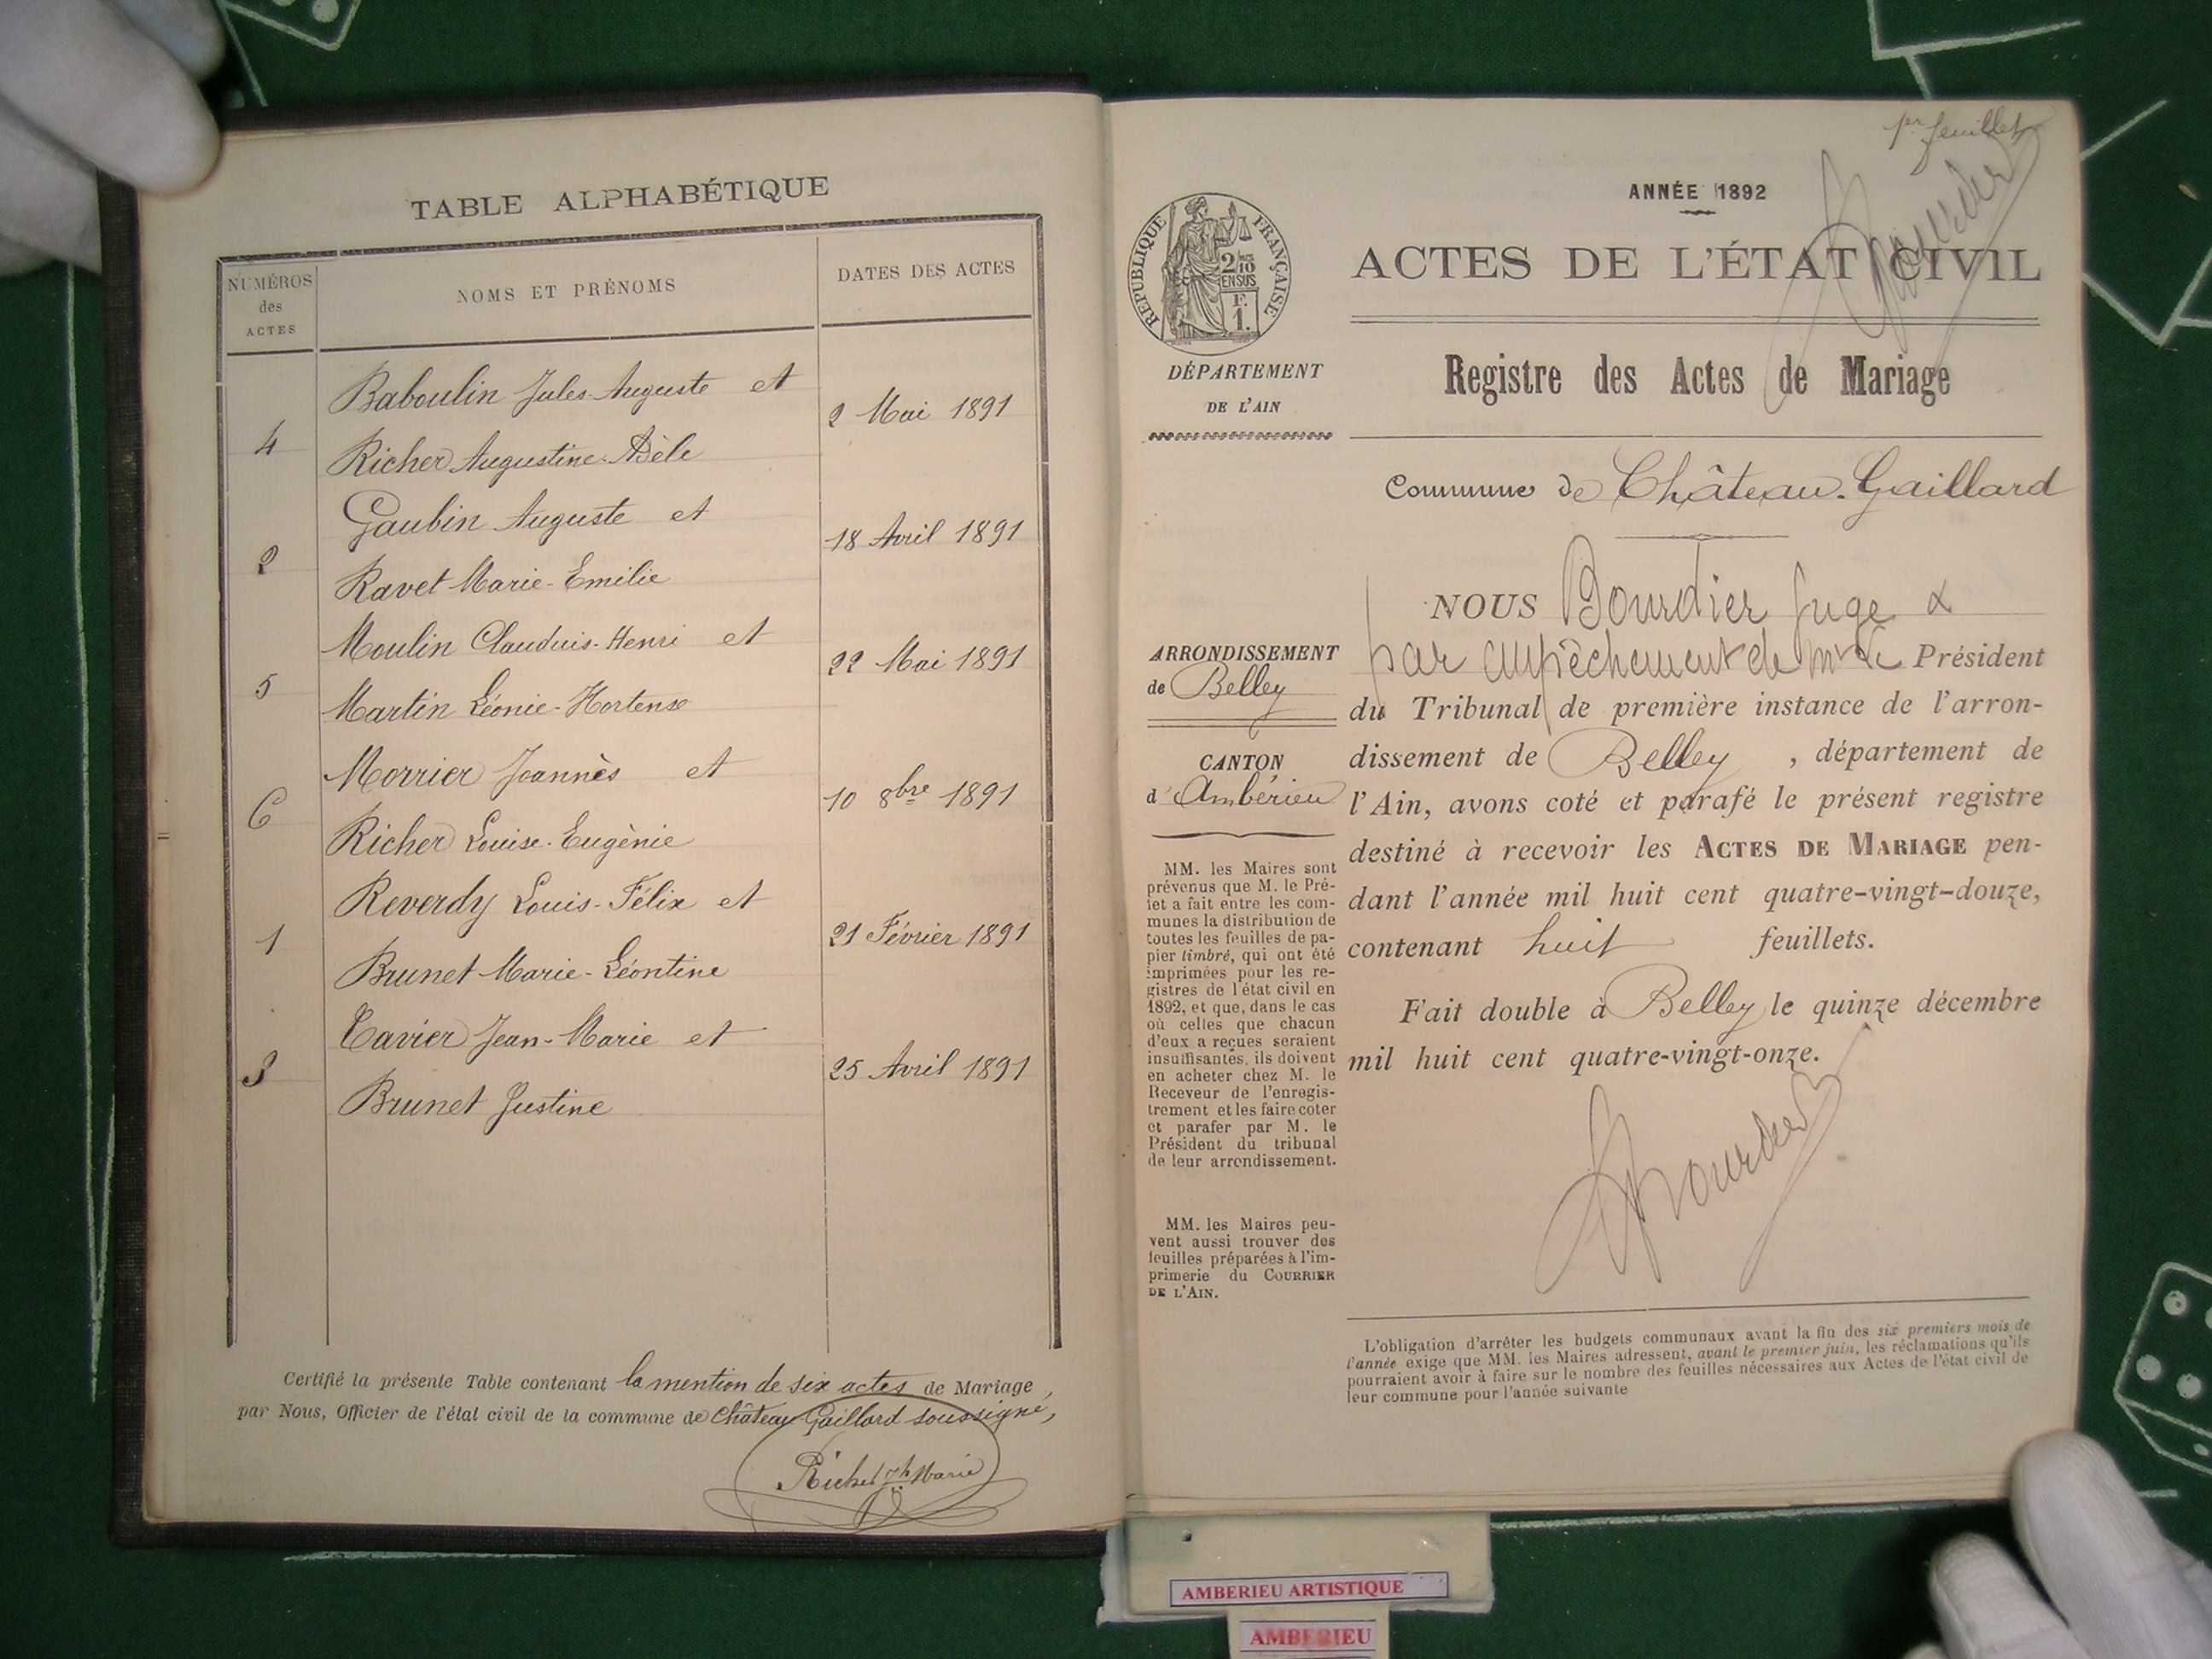 TABLE ALPHABÉTIQUE
NUMÉROS
des
ACTES
NOMS ET PRÉNOMS
DATES DES ACTES
Baboulin Jules-Auguste et
2 Mai 1891
4
Richer Augustine-Adèle
Gaubin Auguste et
18 Avril 1891
2
Ravet Marie-Emilie
Moulin Claudius-Henri et
22 Mai 1891
5
Martin Léonie-Hortense
Morrier Joannès et
10 8bre 1891
6
Richer Louise-Eugènie
Reverdy Louis-Félix et
21 Février 1891
1
Brunet Marie-Léontine
Tavier Jean-Marie et
25 Avril 1891
3
Brunet Justine
Certifié la présente Table contenant la mention de six actes de Mariage,
par Nous, Officier de l'état civil de la commune de Château-Gaillard soussigné,
Richer Jh Marie
1er feuillet
Bourdier
ANNÉE 1892
RÉPUBLIQUE FRANÇAISE
2/10 EN SUS
F. 1.
ACTES DE L'ÉTAT CIVIL
DÉPARTEMENT
DE L'AIN
Registre des Actes de Mariage
Commune de Château-Gaillard
ARRONDISSEMENT
de Belley
CANTON
d'Ambérieu
MM. les Maires sont
prévenus que M. le Pré-
fet a fait entre les com-
munes la distribution de
toutes les feuilles de pa-
pier timbré, qui ont été
imprimées pour les re-
gistres de l'état civil en
1892, et que, dans le cas
où celles que chacun
d'eux a reçues seraient
insuffisantes, ils doivent
en acheter chez M. le
Receveur de l'enregis-
trement et les faire coter
et parafer par M. le
Président du tribunal
de leur arrondissement.
MM. les Maires peu-
vent aussi trouver des
feuilles préparées à l'im-
primerie du COURRIER
DE L'AIN.
NOUS Bourdier juge
par empêchement de Mr le Président
du Tribunal de première instance de l'arron-
dissement de Belley, département de
l'Ain, avons coté et parafé le présent registre
destiné à recevoir les ACTES DE MARIAGE pen-
dant l'année mil huit cent quatre-vingt-douze,
contenant huit feuillets.
Fait double à Belley le quinze décembre
mil huit cent quatre-vingt-onze.
Bourdier
L'obligation d'arrêter les budgets communaux avant la fin des six premiers mois de
l'année exige que MM. les Maires adressent, avant le premier juin, les réclamations qu'ils
pourraient avoir à faire sur le nombre des feuilles nécessaires aux Actes de l'état civil de
leur commune pour l'année suivante
AMBERIEU ARTISTIQUE
AMBERIEU